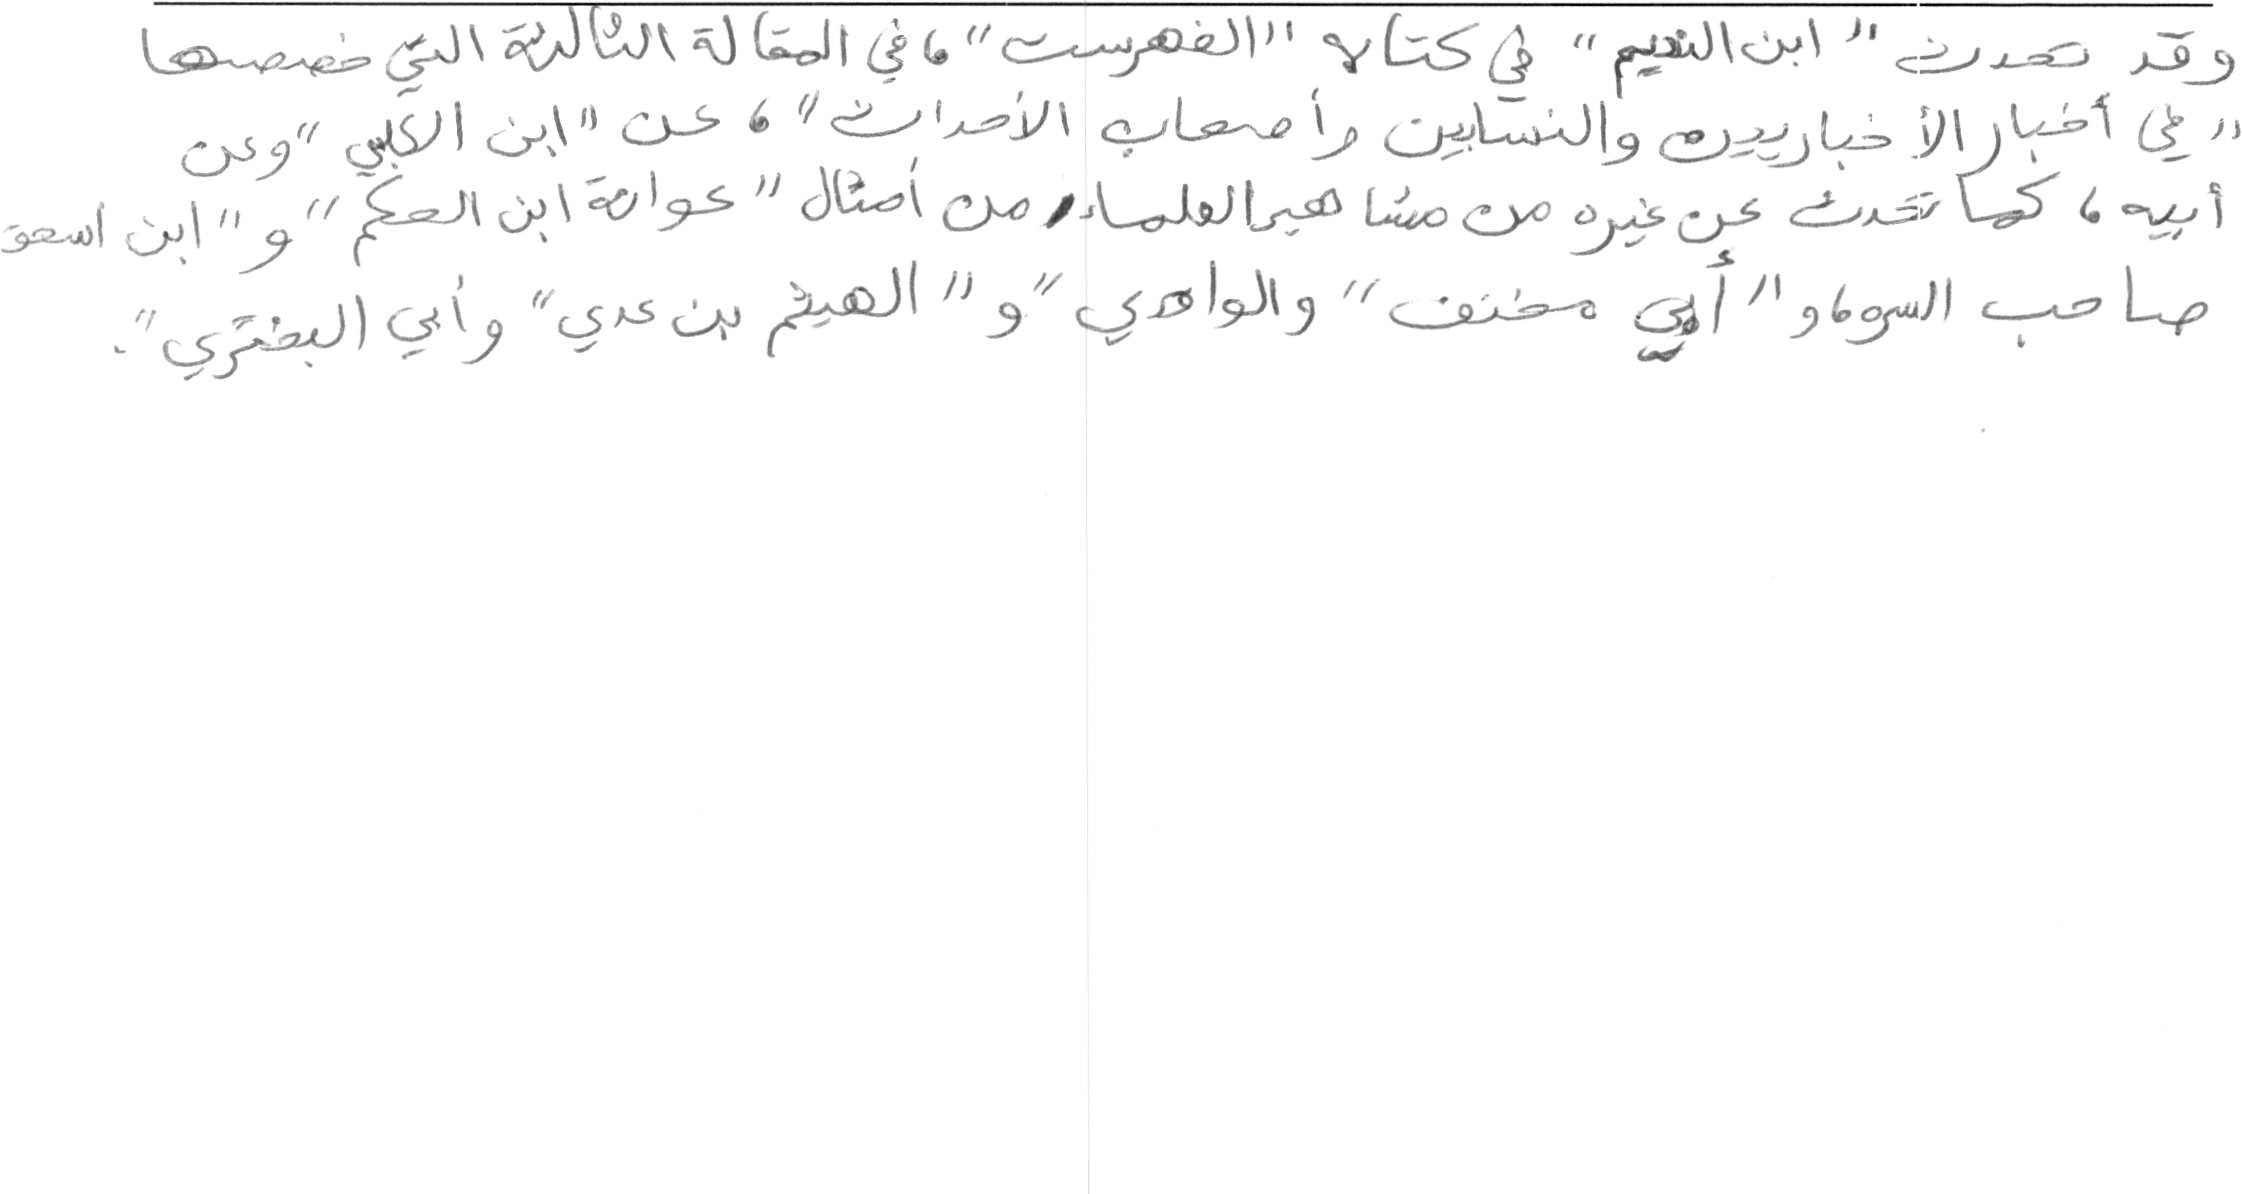 وقد تحدث "ابن النديم" في كتابه "الفهرست"، في المقالة الثالثة التي خصصها
"في أخبار الأخباريين والنسابين وأصحاب الأحداث"، عن "ابن الكلبي" وعن
أبيه، كما تحدث عن غيره من مشاهير العلماء من أمثال "عوانة ابن الحكم" و"ابن اسحق
صاحب السيرة، و"أبي مخنف" والواقدي" و"الهيثم بن عدي" وأبي البختري".